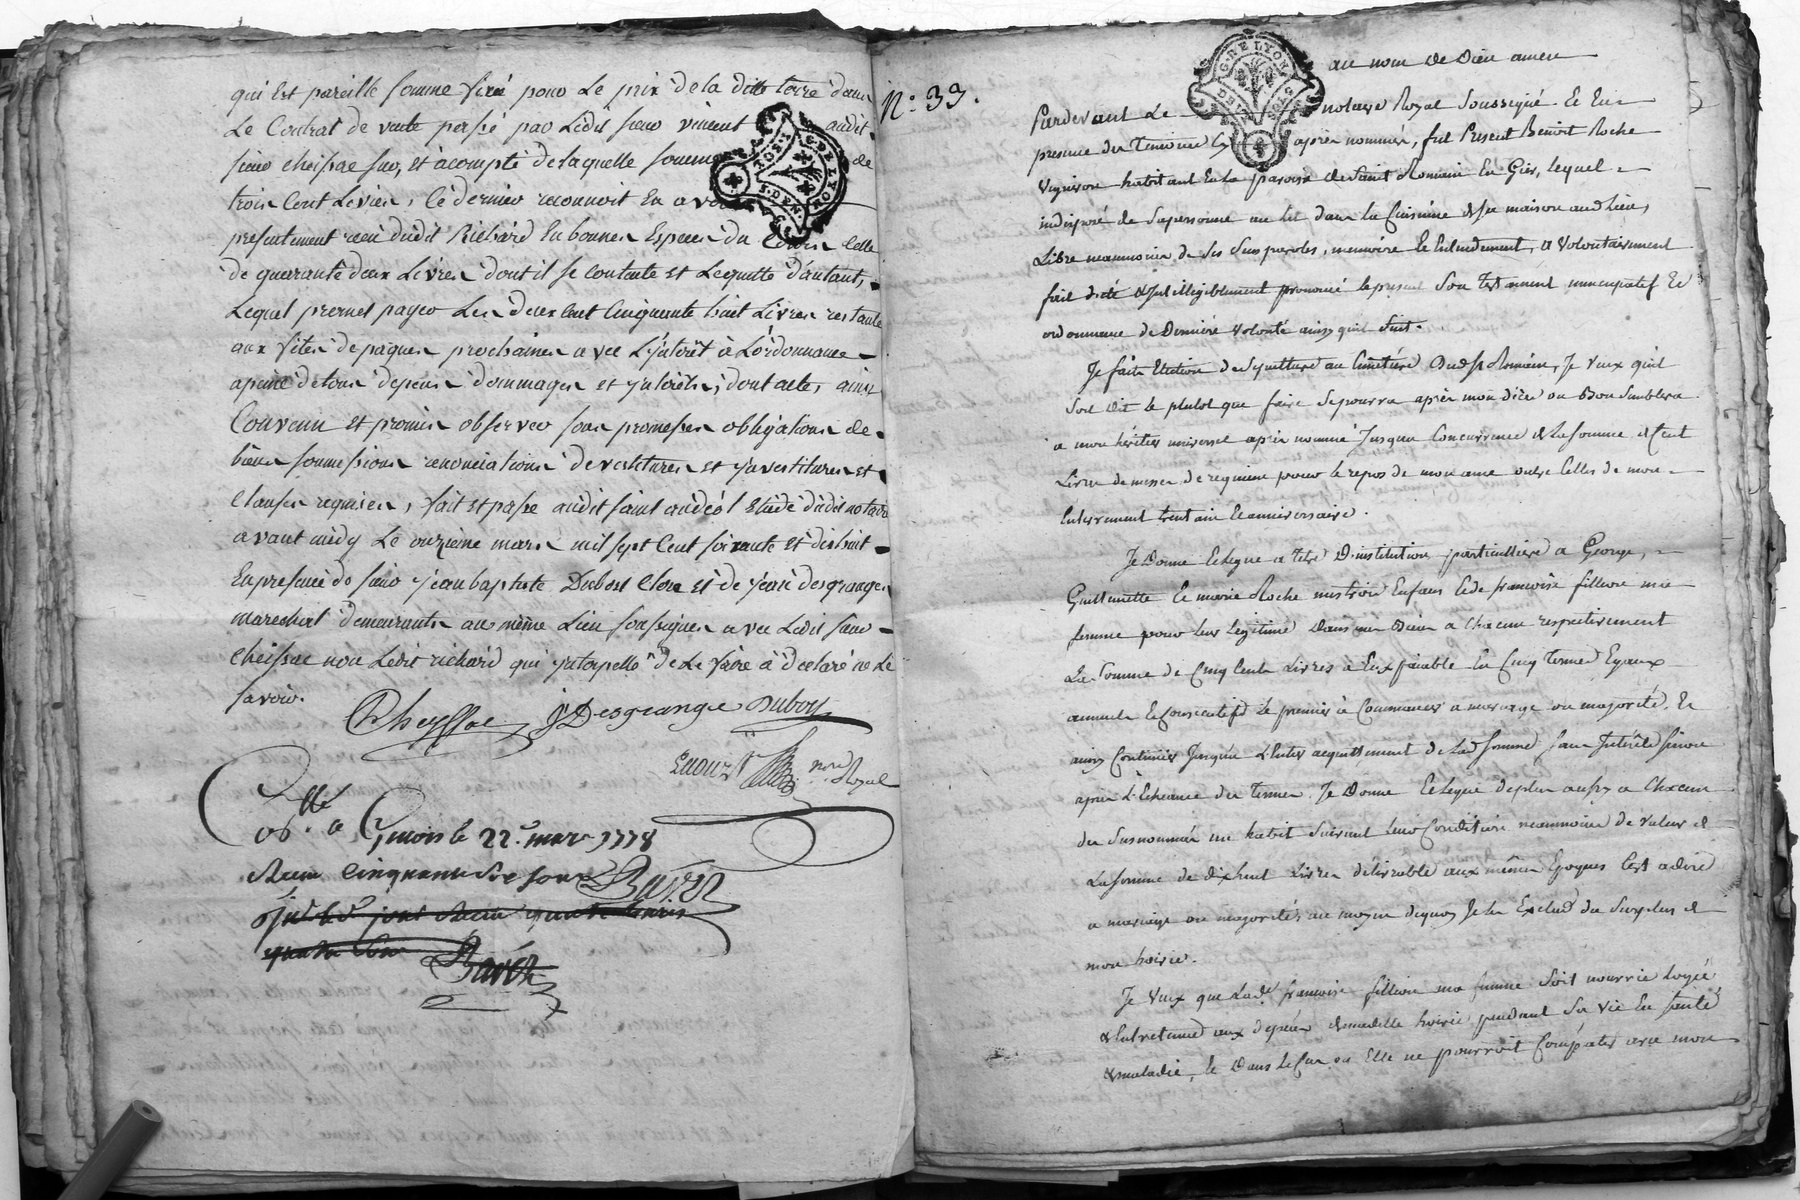 qui Est pareille somme fixée pour Le prix de la ditte terre dans
Le Contrat de vente passé par Ledit sieur vincent audit
sieur cheissac sus, et acompte de laquelle somme de
trois Cent Livres, Ce dernier reconnoit En avoir
presentement reçu dudit Richard En bonnes Especes du Cours Celle
de quarante deux Livres dont il se contente et Lequitte d'autant,
Lequel promet payer Les deux Cent Cinquante huit Livres restante
aux fêtes de paques prochaines avec L'jnterêt à L'ordonnance
apeine de tous depens dommages et jnterêts; dont acte, ainsi
Convenu et promis observer sous promesses obligations de
biens soumissions renonciations devestitures et jnvestitures et
Clauses requises, fait et passé audit saint andéol Etude dudit notaire
avant midy Le onzieme mars mil sept Cent soixante et dixhuit
En presence de sieur jean baptiste Dubost Clerc et de jean desgranges
marechal demeurants au même Lieu soussignes avec Ledit sieur
Cheissac non Ledit richard qui jnterpellé de Le faire à declaré ne Le
savoir.
Cheyssac J Desgrange Dubost
nre Royal
Collé
a Givors le 22e mars 1778
Recu Cinquante Six sous
Baret
N.° 33.
au nom de Dieu amen
Pardevant Le notaire Royal Soussigné Et En
presence des Temoins cy après nommés, fut Present Benoit Roche
vigneron habitant En la paroisse de saint Romain En Gier, lequel
indisposé de sa personne au lit dans la Cuisine de sa maison aud Lieu,
Libre neanmoins de ses sens, paroles, memoire Et Entendement, a volontairement
fait dicté et Intelligiblement prononcé le present Son testament nuncupatif Et
ordonnance de Derniere volonté ainsy quil suit.
Je fais Election de Sepulture au Cimetiere Dud St Romain, Je veux quil
soit dit le plutot que faire se pourra après mon décès ou Bon Semblera
a mon héritier universel après nommé Jusqua Concurrence de la somme de Cent
Livres de messes de requiem pour le repos de mon ame outre Celles de mon
Enterrement trentain Et anniversaire.
Je Donne Et legue a titre D'institution particulliere a George,
Guillemette Et marie Roche mes trois Enfans Et de francoise fillion ma
femme pour leur legitime Dans mes Biens a Chacun respectivement
La Somme de Cinq Cent Livres a Eux païable En Cinq Termes Egaux
annuels Et Consecutifs le premier à Commancer a mariage ou majorité, Et
ainsy Continuer Jusqua l'Entier acquittement de lad somme sans Interêts sinon
après l'Echeance des Termes. Je Donne Et legue deplus aussy a Chacun
des Susnommés un habit Suivant leur Condition neanmoins de valeur de
La somme de dixhuit Livres délivrable aux mêmes Epoques Cest adire
a mariage ou majorités, au moyen dequoy Je les Exclus du Surplus de
mon hoirie.
Je veux que Lade francoise fillion ma femme Soit nourrie logée
et Entretenue aux depens de madite hoirie pendant Sa vie En santé
et maladie, Et Dans le Cas ou Elle ne pourroit Compatir avec mon